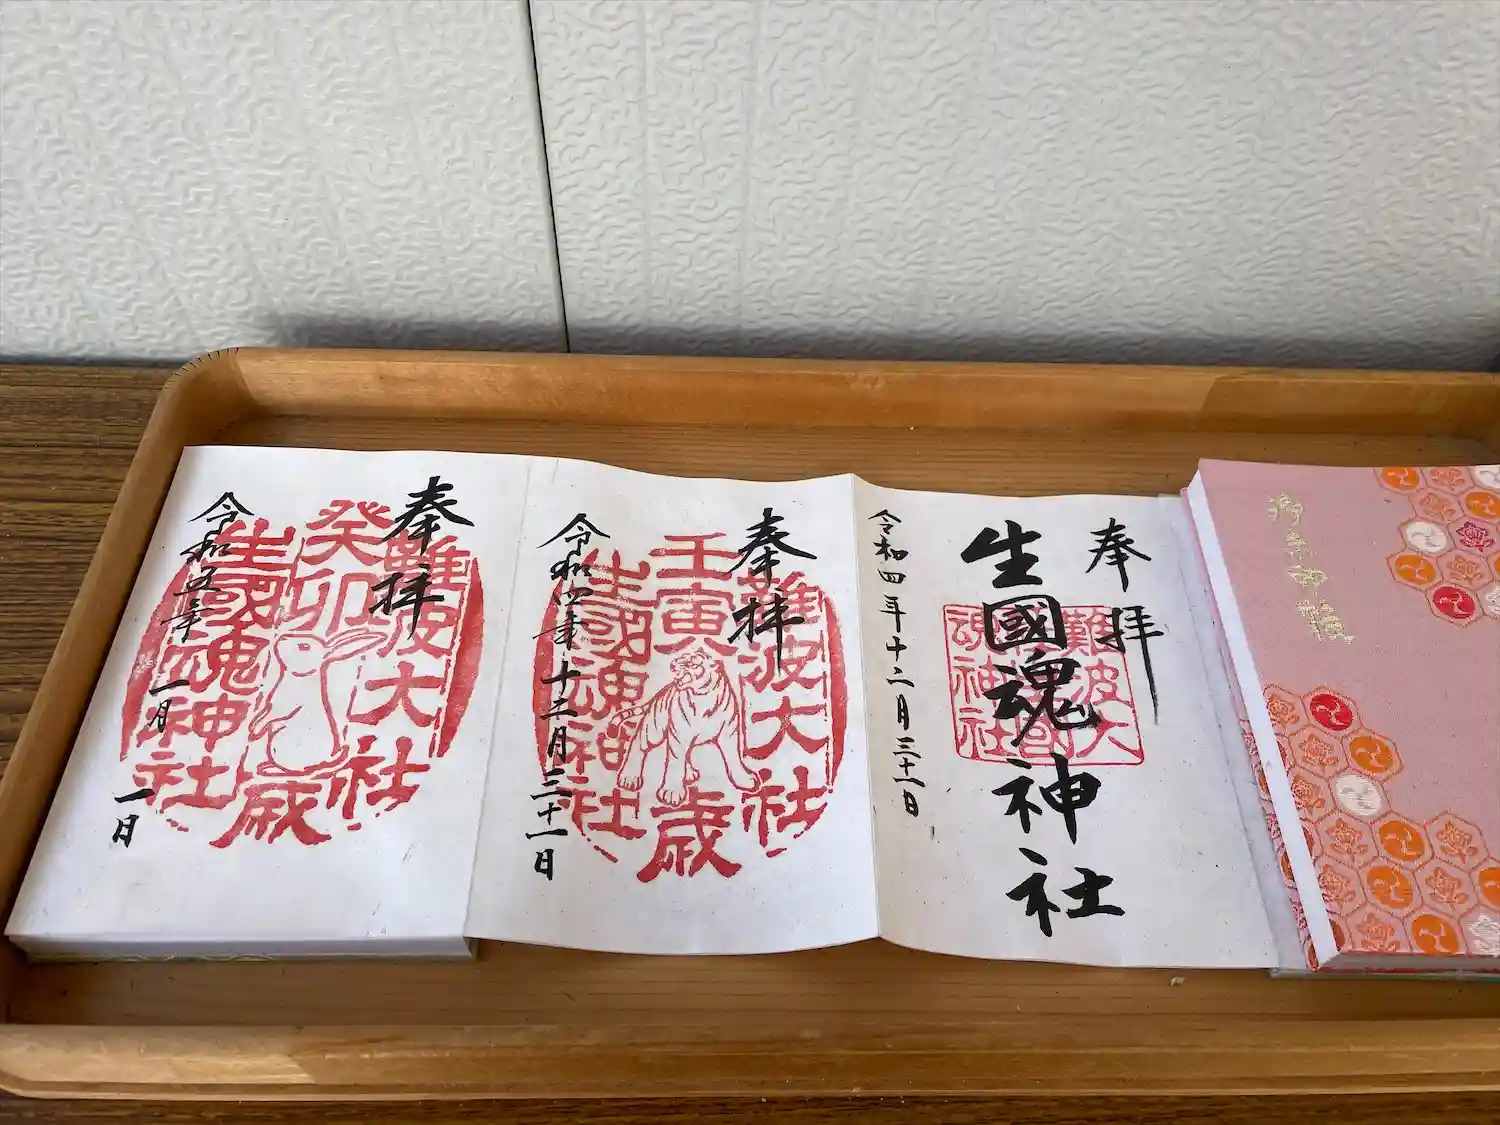 奉拝
難波大社
癸卯歳
生國魂神社
令和五年一月一日
奉拝
難波大社
壬寅歳
生國魂神社
令和四年十二月三十一日
奉拝
生國魂神社
難波大社
令和四年十二月三十一日
御朱印帳